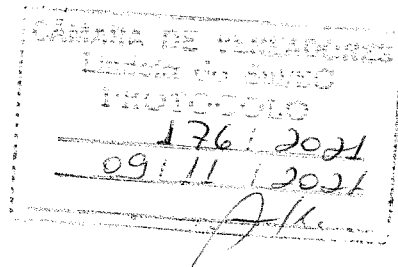 CÂMARA DE VEREADORES
PROTOCOLO
176 / 2021
09 / 11 / 2021